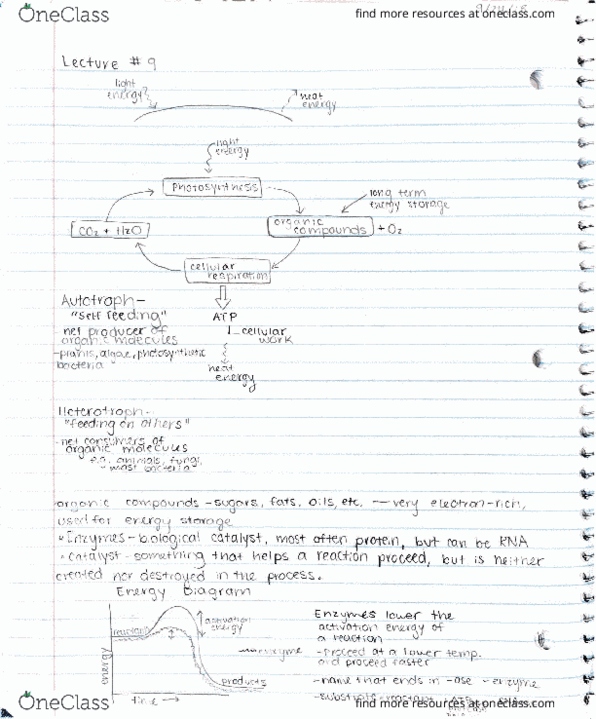 OneClass
find more resources at oneclass.com
Lecture #9
light
energy?
heat
energy
light
energy
photosynthesis
long term
energy storage
CO2 + H2O
organic
compounds + O2
cellular
respiration
Autotroph-
"self feeding"
ATP
net producer of
organic molecules
cellular
work
-plants, algae, photosynthetic
bacteria
heat
energy
Heterotroph-
"feeding on others"
-net consumers of
organic molecules
e.g. animals, fungi,
most bacteria
organic compounds - sugars, fats, oils, etc. — very electron-rich,
used for energy storage
Enzymes - biological catalyst, most often protein, but can be RNA
catalyst - something that helps a reaction proceed, but is neither
created nor destroyed in the process.
Energy Diagram
activation
energy
reactant
products
energy
time
Enzymes lower the
activation energy of
a reaction
-proceed at a lower temp.
and proceed faster
-name that ends in -ase - enzyme
OneClass
find more resources at oneclass.com